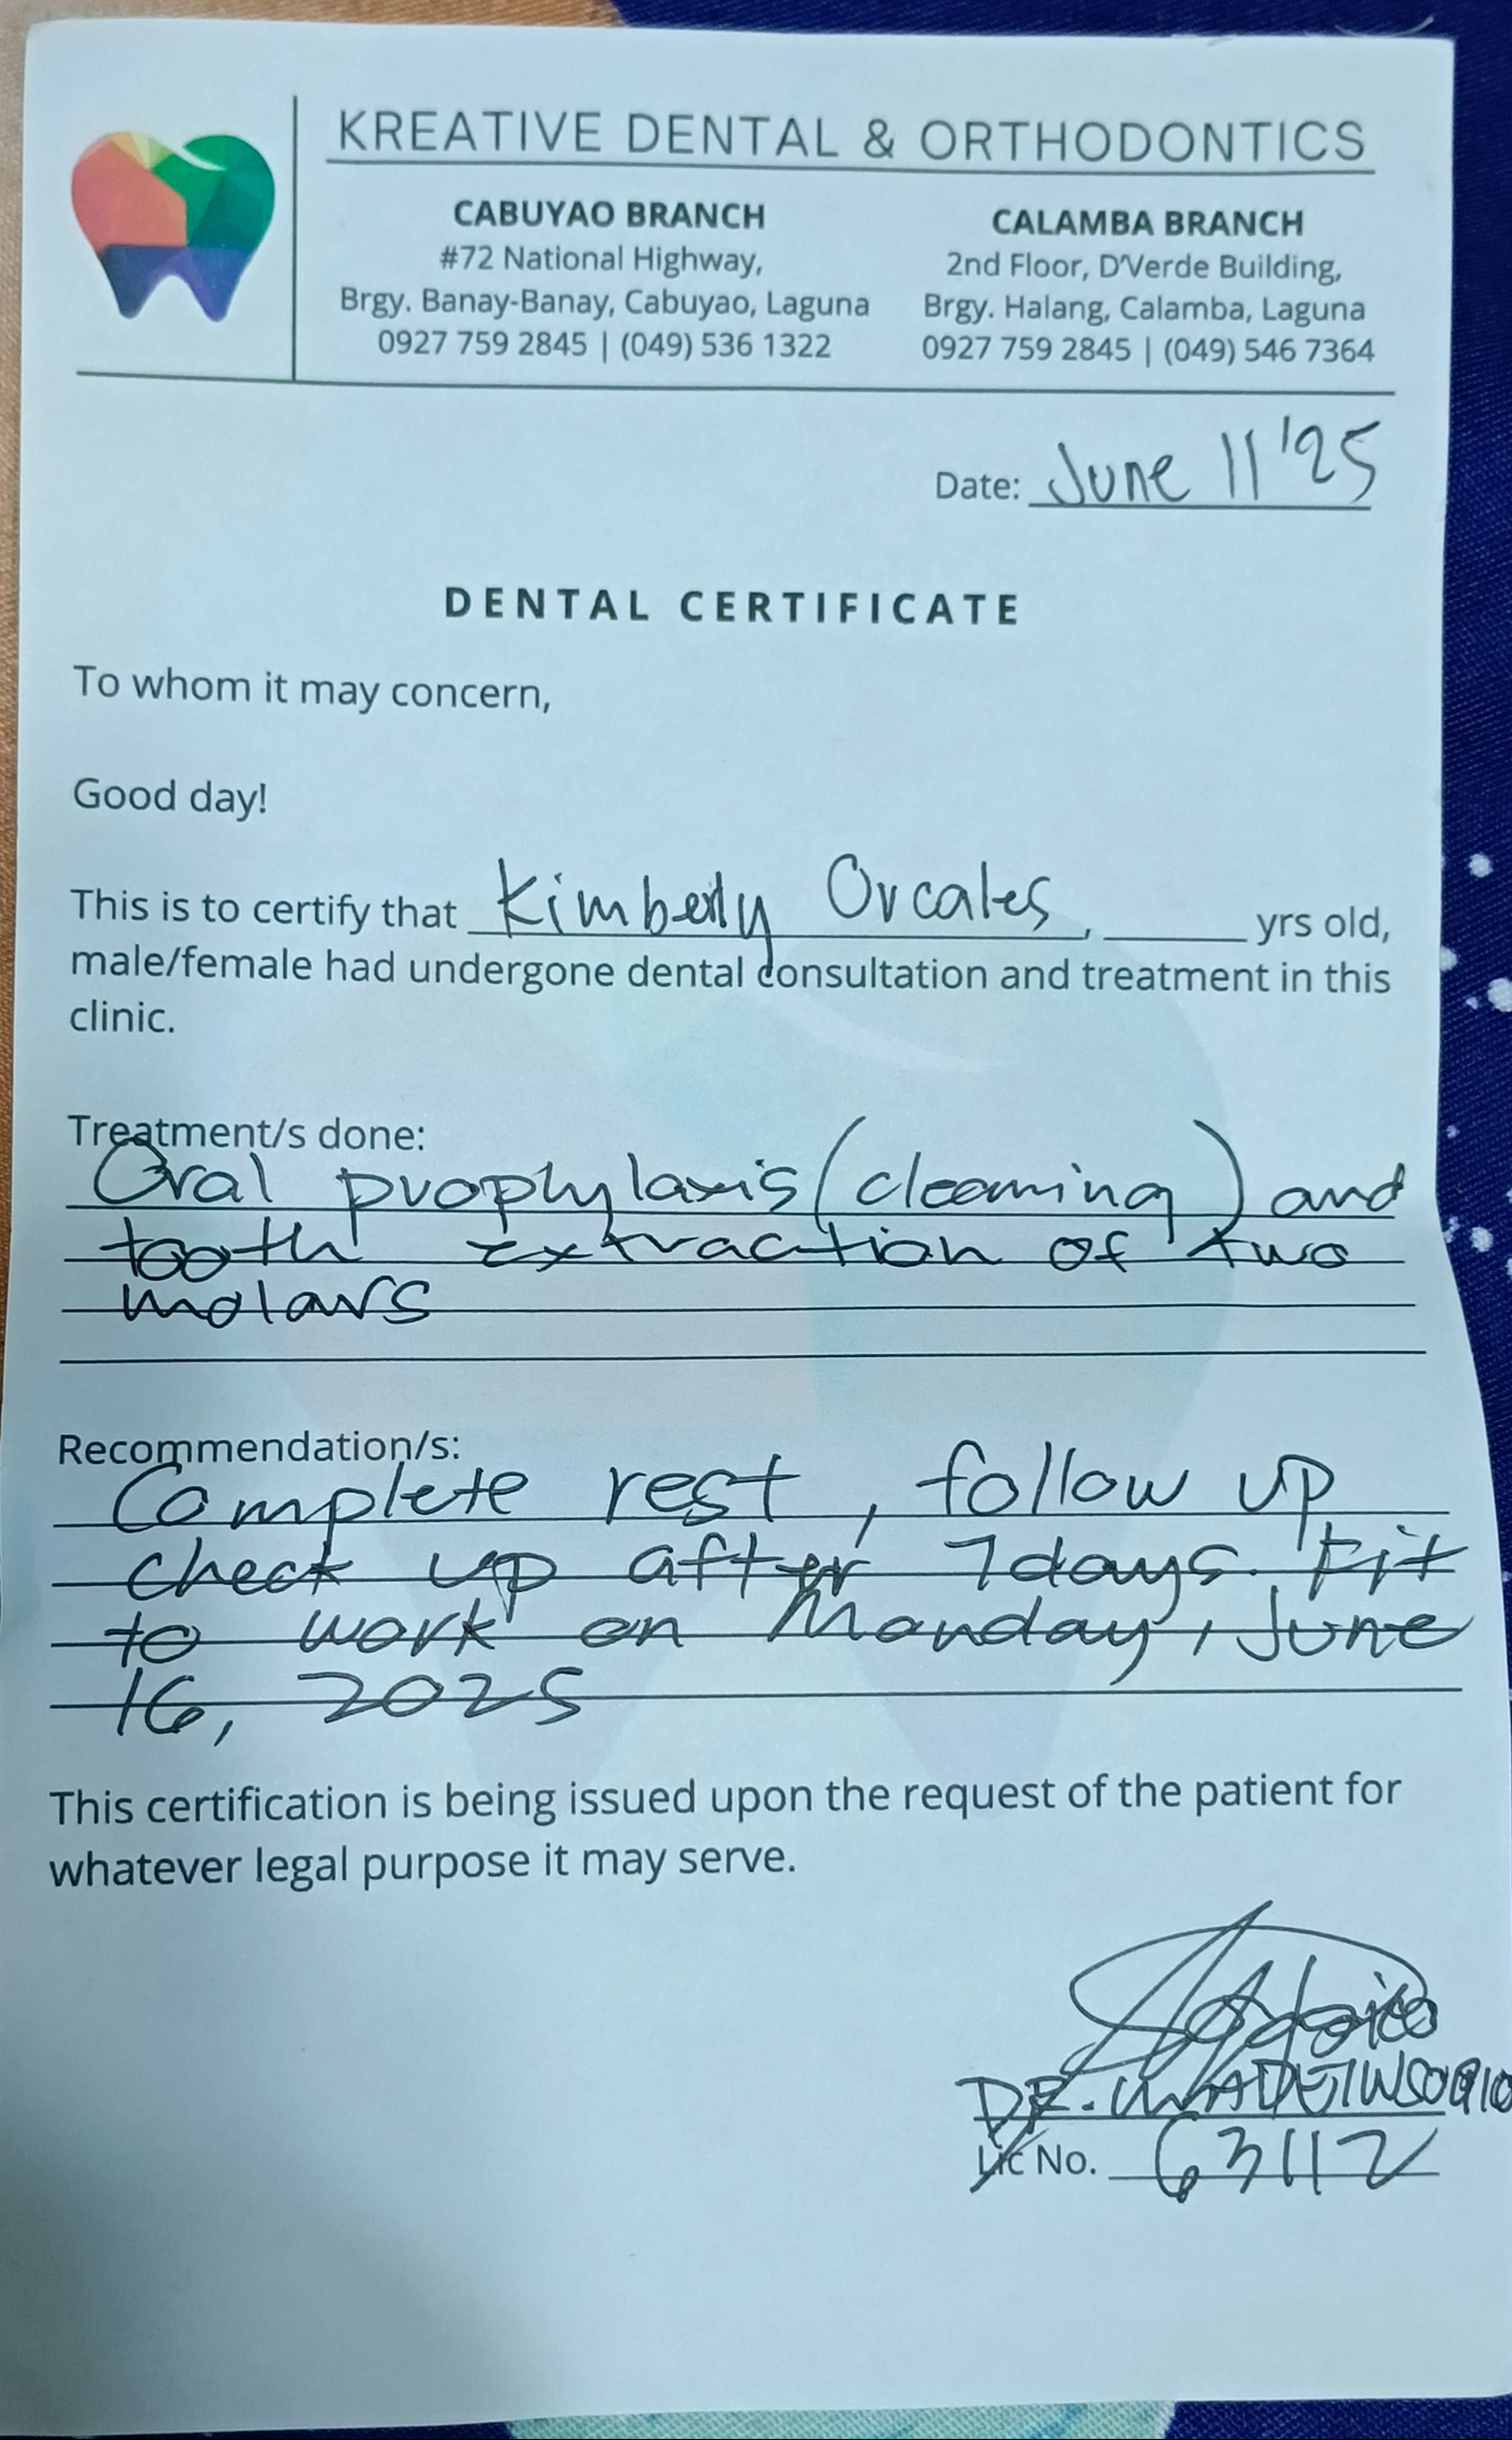 KREATIVE DENTAL & ORTHODONTICS
CABUYAO BRANCH
#72 National Highway,
Brgy. Banay-Banay, Cabuyao, Laguna
0927 759 2845 | (049) 536 1322
CALAMBA BRANCH
2nd Floor, D'Verde Building,
Brgy. Halang, Calamba, Laguna
0927 759 2845 | (049) 546 7364
Date: June 11 '25
DENTAL CERTIFICATE
To whom it may concern,
Good day!
This is to certify that Kimberly Orcales, ______ yrs old,
male/female had undergone dental consultation and treatment in this
clinic.
Treatment/s done:
Oral prophylaxis (cleaning) and
tooth extraction of two
molars
Recommendation/s:
Complete rest, follow up
check up after 7 days. Fit
to work on Monday, June
16, 2025
This certification is being issued upon the request of the patient for
whatever legal purpose it may serve.
DR.
Lic No. 63112